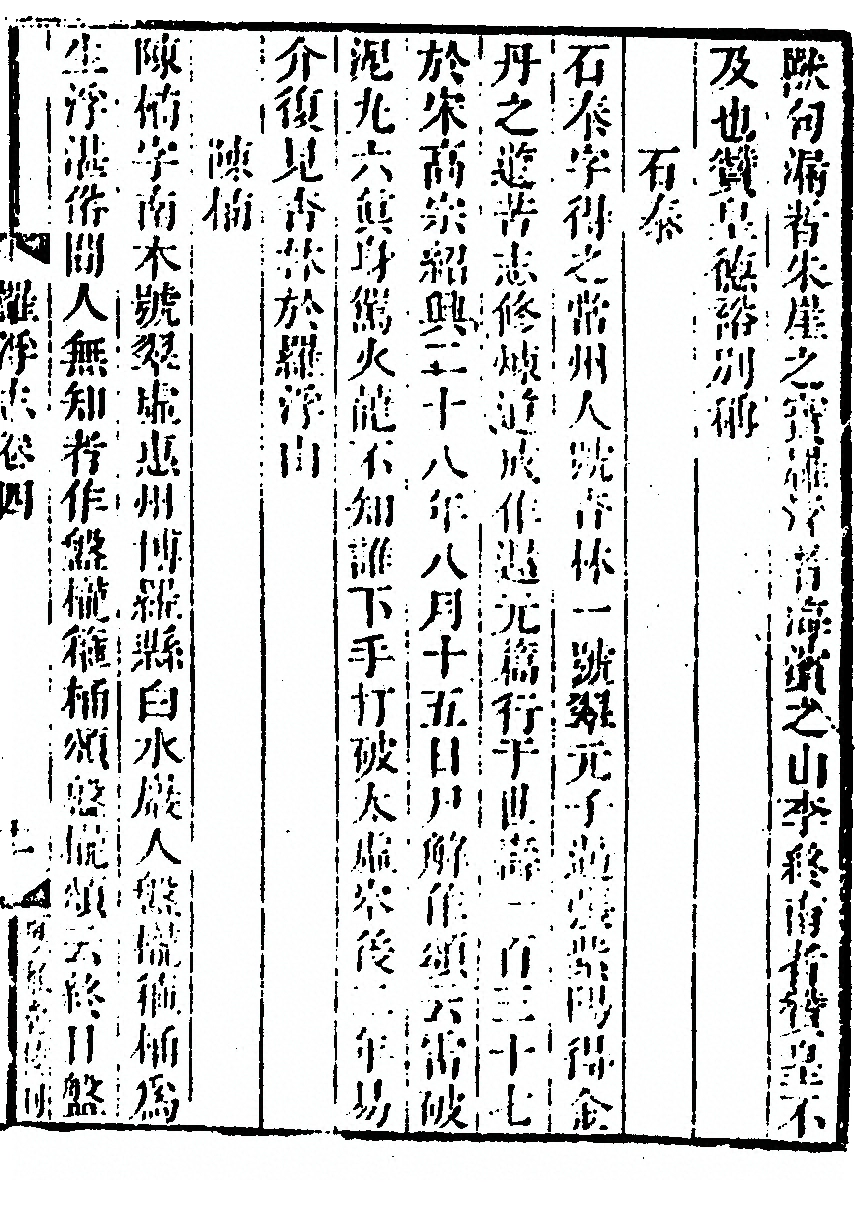 歟句漏者朱崖之寶羅浮者海嶺之山李終南者贊皇不
及也贊皇德裕別稱
石泰
石泰字得之常州人號杏林一號翠元子遇張紫陽得金
丹之道苦志修煉道成作還元篇行于世壽一百三十七
於宋高宗紹興二十八年八月十五日尸解作頌云雷破
泥丸穴真身駕火龍不知誰下手打破太虛空後二年易
介復見杏林於羅浮山
陳楠
陳楠字南木號翠虛惠州博羅縣白水巖人盤櫳箍桶為
生浮湛俗間人無知者作盤櫳箍桶頌盤櫳頌云終日盤
羅浮志卷四